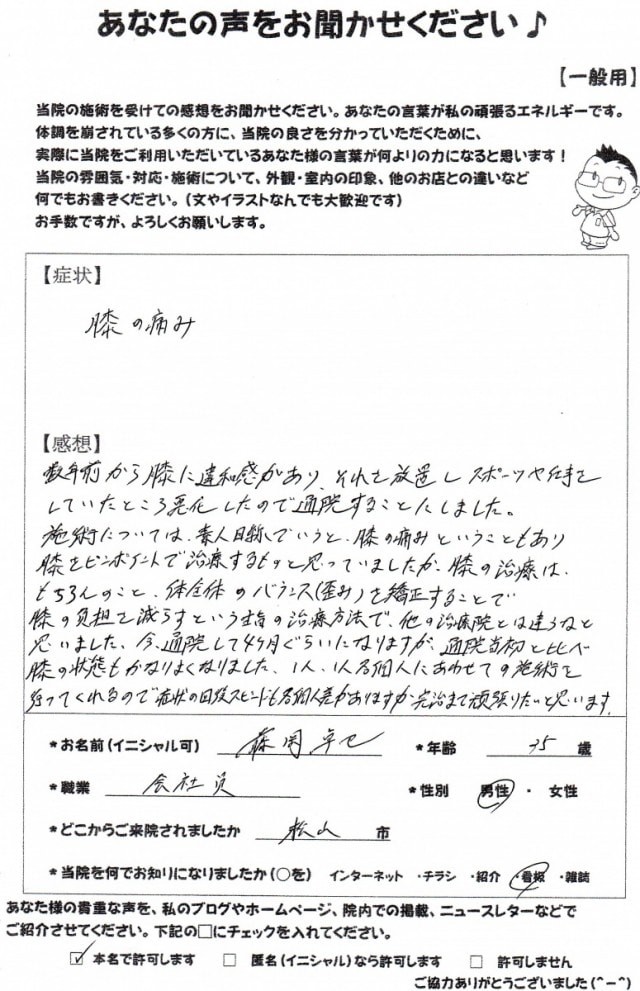 あなたの声をお聞かせください♪
【一般用】
当院の施術を受けての感想をお聞かせください。あなたの言葉が私の頑張るエネルギーです。
体調を崩されている多くの方に、当院の良さを分かっていただくために、
実際に当院をご利用いただいているあなた様の言葉が何よりの力になると思います！
当院の雰囲気・対応・施術について、外観・室内の印象、他のお店との違いなど
何でもお書きください。（文やイラストなんでも大歓迎です）
お手数ですが、よろしくお願いします。
【症状】
膝の痛み
【感想】
数年前から膝に違和感があり、それを放置しスポーツや仕事を
していたところ悪化したので通院することにしました。
施術については、素人目線でいうと、膝の痛みということもあり
膝をピンポイントで治療するものと思っていましたが、膝の治療は、
もちろんのこと、体全体のバランス(歪み)を矯正することで
膝の負担を減らすという主旨の治療方法で、他の治療院とは違うなと
思いました。今、通院して4ヶ月ぐらいになりますが、通院当初と比べ
膝の状態もかなりよくなりました。1人、1人各個人にあわせての施術を
行ってくれるので症状の回復スピードも各個人差がありますが、完治まで頑張りたいと思います。
*お名前（イニシャル可） 藤岡卓巳 *年齢 35 歳
*職業 会社員 *性別 男性 ・ 女性
*どこからご来院されましたか 松山 市
*当院を何でお知りになりましたか（○を） インターネット ・チラシ ・紹介 ・看板 ・雑誌
あなた様の貴重な声を、私のブログやホームページ、院内での掲載、ニュースレターなどで
ご紹介させてください。下記の□にチェックを入れてください。
☑ 本名で許可します □ 匿名（イニシャル）なら許可します □ 許可しません
ご協力ありがとうございました（＾－＾）